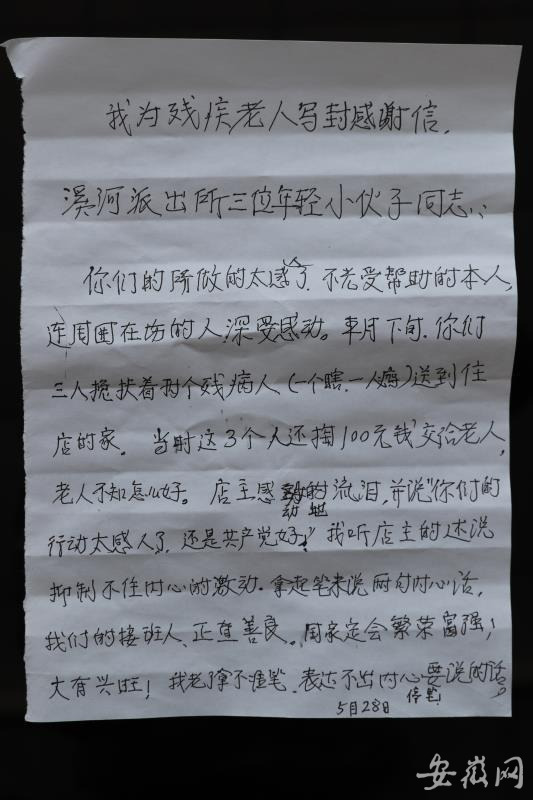 我为残疾老人写封感谢信.
溪河派出所三位年轻小伙子同志：
你们的所做的太感人了,不光受帮助的本人,
连周围在场的人,深受感动。本月下旬.你们
三人搀扶着两个残病人(一个瞎.一人瘸)送到住
店的家。当时这3个人还掏100元钱交给老人,
老人不知怎么好。店主感动地流泪,并说"你们的
行动太感人了,还是共产党好!"我听店主的述说
抑制不住内心的激动.拿起笔来说两句内心话,
我们的接班人、正直善良。国家定会繁荣富强!
大有兴旺!我老了拿不准笔.表达不出内心要说的话。
停笔
5月28日
安徽网